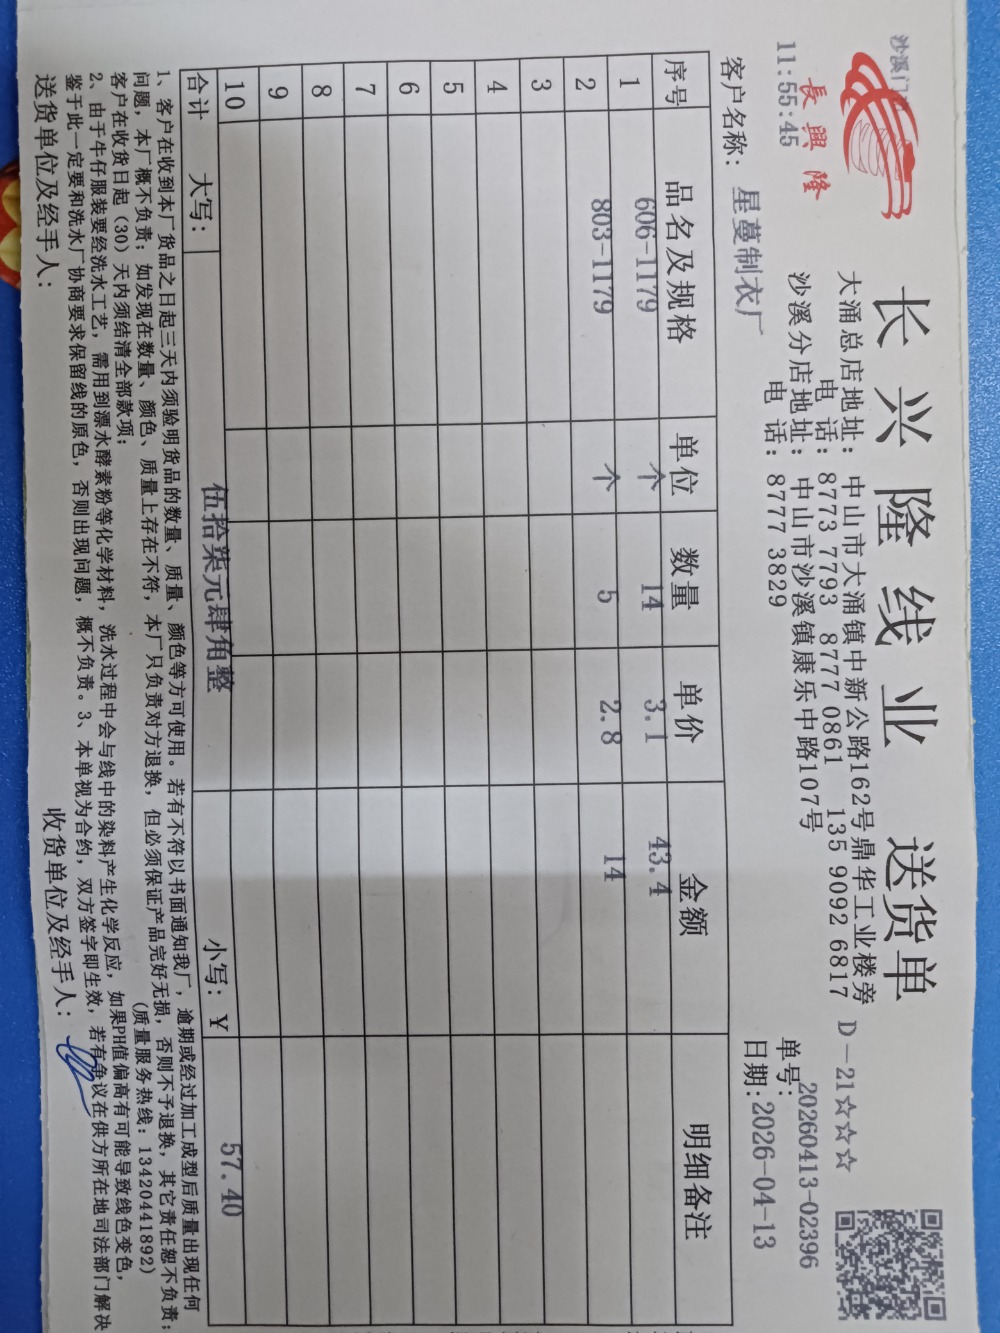 沙溪门
11:55:45
長興隆
长兴隆线业 送货单
大涌总店地址：中山市大涌镇中新公路162号鼎华工业楼旁 D-21☆☆☆
电 话：8773 7793 8777 0861 135 9092 6817
沙溪分店地址：中山市沙溪镇康乐中路107号
电 话：8777 3829
单号：20260413-02396
客户名称：星蔓制衣厂
日期：2026-04-13
序号 品名及规格 单位 数量 单价 金额 明细备注
1 606-1179 个 14 3.1 43.4
2 803-1179 个 5 2.8 14
3
4
5
6
7
8
9
10
合计 大写： 伍拾柒元肆角整 小写：￥ 57.40
1、客户在收到本厂货品之日起三天内须验明货品的数量、质量、颜色等方可使用。若有不符以书面通知我厂，逾期或经过加工成型后质量出现任何
问题，本厂概不负责；如发现在数量、颜色、质量上存在不符，本厂只负责对方退换，但必须保证产品完好无损，否则不予退换，其它责任恕不负责；
客户在收货日起（30）天内须结清全部款项； (质量服务热线：13420441892)
2、由于牛仔服装要经洗水工艺，需用到漂水酵素粉等化学材料，洗水过程中会与线中的染料产生化学反应，如果PH值偏高有可能导致线色变色，
鉴于此一定要和洗水厂协商要求保留线的原色，否则出现问题，概不负责。3、本单视为合约，双方签字即生效，若有争议在供方所在地司法部门解决
送货单位及经手人： 收货单位及经手人：